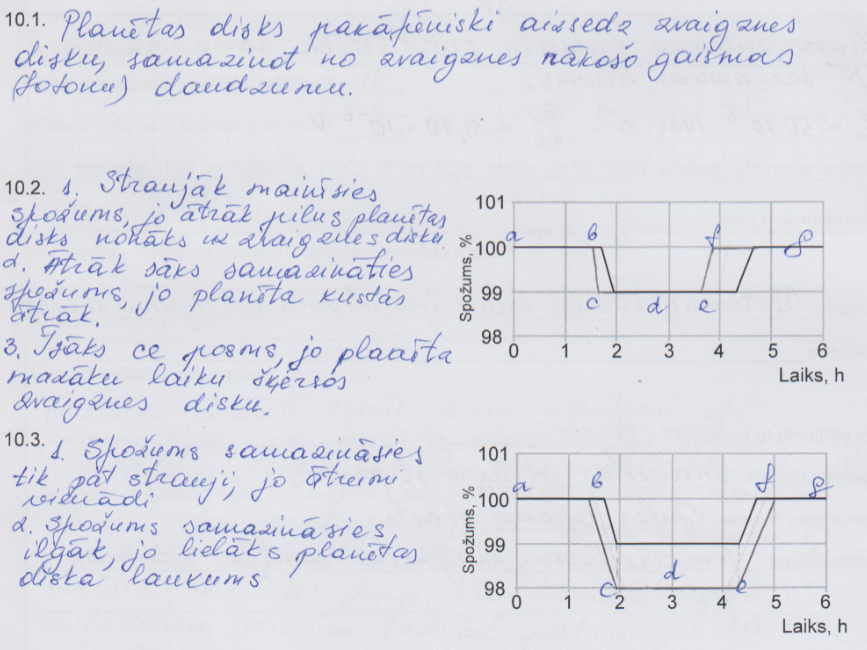 10.1. Planētas disks pakāpeniski aizsedz zvaigznes
disku, samazinot no zvaigznes nākošo gaismas
(fotonu) daudzumu.
10.2. 1. Straujāk mainīsies
spožums, jo ātrāk pilns planētas
disks nonāks uz zvaigznes disku
2. Ātrāk sāks samazināties
spožums, jo planēta kustās
ātrāk.
3. Īsāks ce posms, jo planēta
mazāku laiku šķērsos
zvaigznes disku.
Spožums, %
101
100
99
98
a b f g
c d e
0 1 2 3 4 5 6
Laiks, h
10.3. 1. Spožums samazināsies
tik pat strauji, jo ātrumi
vienādi
2. Spožums samazināsies
ilgāk, jo lielāks planētas
diska laukums
Spožums, %
101
100
99
98
a b f g
c d e
0 1 2 3 4 5 6
Laiks, h